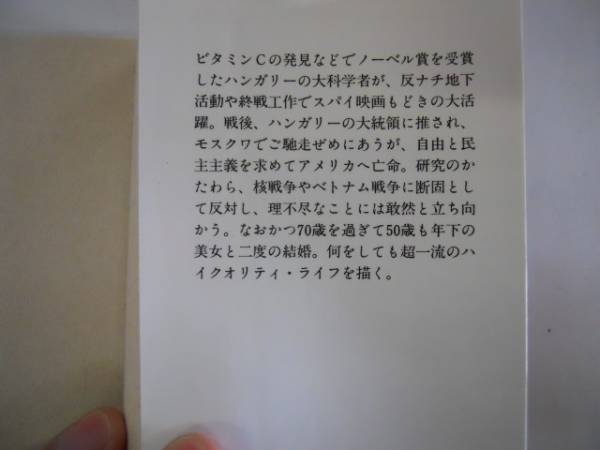 ビタミンCの発見などでノーベル賞を受賞
したハンガリーの大科学者が、反ナチ地下
活動や終戦工作でスパイ映画もどきの大活
躍。戦後、ハンガリーの大統領に推され、
モスクワでご馳走ぜめにあうが、自由と民
主主義を求めてアメリカへ亡命。研究のか
たわら、核戦争やベトナム戦争に断固とし
て反対し、理不尽なことには敢然と立ち向
かう。なおかつ70歳を過ぎて50歳も年下の
美女と二度の結婚。何をしても超一流のハ
イクオリティ・ライフを描く。